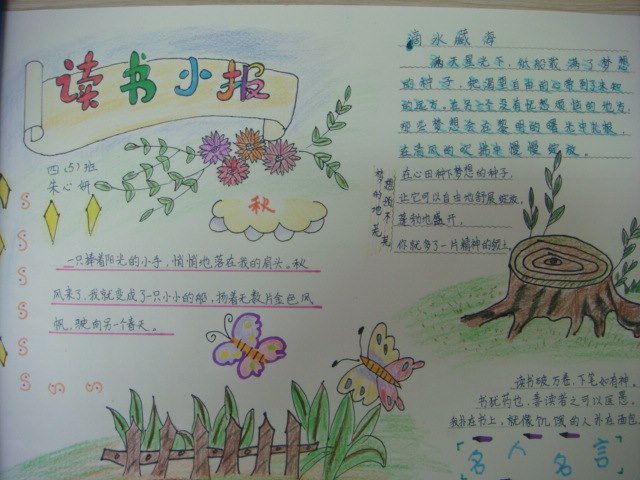 读书小报
四(5)班
朱心妍
秋
一只捧着阳光的小手,悄悄地落在我的肩头。秋
风来了,我就变成了一只小小的船,扬着无数片金色风
帆,驶向另一个春天。
滴水藏海
满天星光下,低船载满了梦想
的种子,把渴望自由的心带到了未知
的远方。在另一个没有忧愁烦恼的地方,
那些梦想会在黎明的曙光中扎根,
在清风的吹拂中慢慢绽放。
梦想
的
地
荒芜
在心田种下梦想的种子,
让它可以自由地舒展绽放,
蓬勃地盛开,
你就多了一片精神的领土
读书破万卷,下笔如有神
书犹药也,善读者之可以医愚。
我扑在书上,就像饥饿的人扑在面包
名人名言